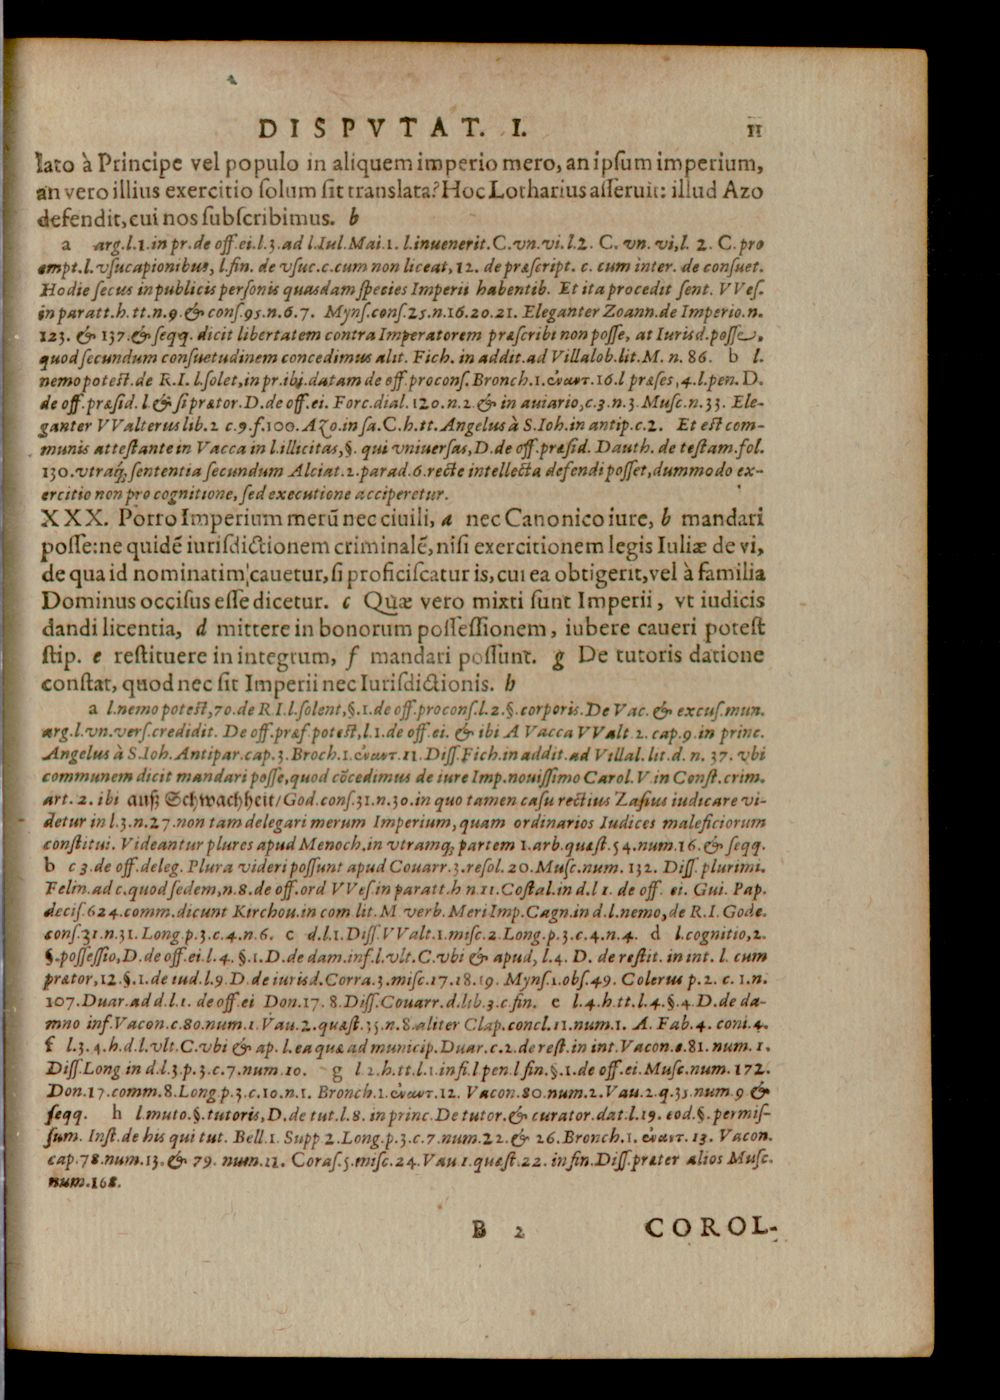 DISPVTAT. I. 11
lato à Principe vel populo in aliquem imperio mero, an ipsum imperium,
an vero illius exercitio solum sit translata? Hoc Lotharius asseruit: illud Azo
defendit, cui nos subscribimus. b
a arg.l.1.in pr.de off.ei.l.3.ad l.Iul.Mai.1. l.inuenerit.C.vn.vi.l.2. C. vn. vi,l. 2. C.pro
empt.l.vsucapionibus, l.fin. de vsuc.c.cum non liceat, 12. de præscript. c. cum inter. de consuet.
Hodie secus in publicis personis quasdam species Imperii habentib. Et ita procedit sent. VVes.
in paratt.h.tt.n.9.& cons.95.n.6.7. Myns.cons.25.n.16.20.21. Eleganter Zoann.de Imperio.n.
123. & 137.& seqq. dicit libertatem contra Imperatorem præscribi non posse, at Iurisd.posse,
quod secundum consuetudinem concedimus alit. Fich. in addit.ad Villalob.lit.M. n. 86. b l.
nemo potest.de R.I. l.solet,in pr.ibi.datam de off.procons.Bronch.1.ἐναντ.16.l præses,4.l.pen.D.
de off.præsid. l & si prætor.D.de off.ei. Forc.dial.120.n.2.& in auiario,c.3.n.3.Musc.n.33. Ele-
ganter VValterus lib.2 c.9.f.100.Azo.in sa.C.h.tt.Angelus à S.Ioh.in antip.c.2. Et est com-
munis attestante in Vacca in l.illicitas,§. qui vniuersas,D.de off.præsid. Dauth. de testam.fol.
130.vtraq; sententia secundum Alciat.2.parad.6.recte intellecta defendi posset,dummodo ex-
ercitio non pro cognitione, sed executione acciperetur.
XXX. Porro Imperium merũ nec ciuili, a nec Canonico iure, b mandari
posse: ne quidẽ iurisdictionem criminalẽ, nisi exercitionem legis Iuliæ de vi,
de qua id nominatim cauetur, si proficiscatur is, cui ea obtigerit, vel à familia
Dominus occisus esse dicetur. c Quæ vero mixti sunt Imperii, vt iudicis
dandi licentia, d mittere in bonorum possessionem, iubere caueri potest
stip. e restituere in integrum, f mandari possunt. g De tutoris datione
constat, quod nec sit Imperii nec Iurisdictionis. b
a l.nemo potest,70.de R.I.l.solent,§.1.de off.procons.l.2.§.corporis.De Vac. & excus.mun.
arg.l.vn.vers.credidit. De off.præf.potest,l.1.de off.ei. & ibi A Vacca VValt.2.cap.9.in princ.
Angelus à S.Ioh.Antipar.cap.3.Broch.1.ἐναντ.11.Diss.Fich.in addit.ad Villal.lit.d. n. 37. vbi
communem dicit mandari posse,quod cõcedimus de iure Imp.nouissimo Carol.V.in Const.crim.
art. 2. ibi auß Schwachheit/God.cons.31.n.30.in quo tamen casu rectius Zasius iudicare vi-
detur in l.3.n.27.non tam delegari merum Imperium, quam ordinarios Iudices maleficiorum
constitui. Videantur plures apud Menoch.in vtramq; partem 1.arb.quæst.54.num.16.& seqq.
b c 3.de off.deleg. Plura videri possunt apud Couarr.3.resol.20.Musc.num.132. Diss.plurimi.
Felin.ad c.quod sedem,n.8.de off.ord VVes.in paratt.h n.11.Costal.in d.l 1. de off. ei. Gui. Pap.
decis.624.comm.dicunt Kirchou.in com lit.M verb.Meri Imp.Cagn.in d.l.nemo,de R.I. Gode.
cons.31.n.31. Long.p.3.c.4.n.6. c d.l.1.Diss.VValt.1.misc.2.Long.p.3.c.4.n.4. d l.cognitio,2.
§.possessio,D.de off.ei.l.4. §.1.D.de dam.inf.l.vlt.C.vbi & apud, l.4. D. de restit. in int. l. cum
prætor,12.§.1.de iud.l.9.D.de iurisd.Corra.3.misc.17.18.19. Myns.1.obs.49. Colerus p.2. c. 1.n.
107.Duar.ad d.l.1. de off.ei Don.17.8.Diss.Couarr.d.lib.3.c.fin. e l.4.h.tt.l.4.§.4.D.de da-
mno inf.Vacon.c.80.num.1.Vau.2.quæst.35.n.8.aliter Clap.concl.11.num.1. A. Fab.4. coni.4.
f l.3.4.h.d.l.vlt.C.vbi & ap.l.ea quæ ad municip.Duar.c.2.de rest.in int.Vacon.e.81. num. 1.
Diss.Long in d.l.3.p.3.c.7.num.10. g l 2.h.tt.l.1.infi.l pen.l fin.§.1.de off.ei.Musc.num. 172.
Don.17.comm.8.Long.p.3.c.10.n.1. Bronch.1.ἐναντ.12. Vacon.80.num.2.Vau.2.q.35.num.9 &
seqq. h l.muto.§.tutoris,D.de tut.l.8. in princ.De tutor.& curator.dat.l.19. eod.§. permis-
sum. Inst.de his qui tut. Bell.1. Supp 2.Long.p.3.c.7.num.22.& 26.Bronch.1. ἐναντ. 13. Vacon.
cap.78.num.13.& 79. num.11. Coras.5.misc.24.Vau 1.quæst.22. in fin.Diss.præter alios Musc.
num.168.
B 2 COROL-